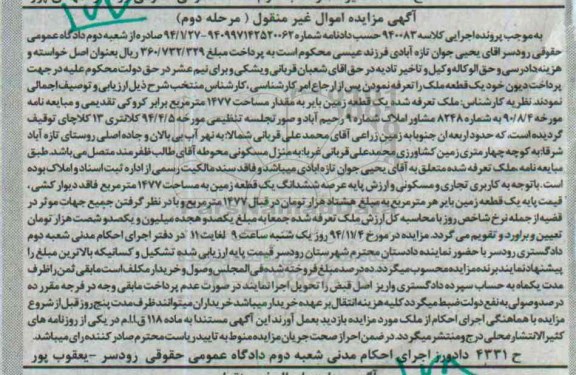 آگهی مزایده اموال غیر منقول ( مرحله دوم )
به موجب پرونده اجرایی کلاسه ۹۴۰۰۸۳ حسب دادنامه شماره ۹۴۰۹۹۷۱۴۲۵۲۰۰۶۲۰-۹۴/۱/۲۷ صادره از شعبه دوم دادگاه عمومی
حقوقی رودسر اقای یحیی جوان تازه آبادی فرزند عیسی محکوم است به پرداخت مبلغ ۳۶۰/۷۳۲/۳۲۹ ریال بعنوان اصل خواسته و
هزینه دادرسی و حق الوکاله وکیل و تاخیر تادیه در حق اقای شعبان قربانی ویشکی و برای نیم عشر در حق دولت محکوم علیه در جهت
پرداخت دیون خود یک قطعه ملک را تعرفه نمودن پس از ارجاع امر کارشناسی ، کارشناس منتخب شرح ذیل ارزیابی و توصیف اجمالی
نمودند. نظریه کارشناس: ملک تعرفه شده یک قطعه زمین بایر به مقدار مساحت ۱۴۷۷ مترمربع برابر کروکی تقدیمی و مبایعه نامه
مورخه ۹۰/۸/۴ به شماره ۸۲۴۸ مشاور املاک شماره ۹۱ رحیم آباد و صورتجلسه تنظیمی مورخه ۹۴/۴/۵ کلانتری ۱۳ کلاچای توقیف
گردیده است، که حدود اربعه ان جنوبا به زمین زراعی آقای محمد علی قربانی شمالا: به نهر آب بی بالان و جاده اصلی روستای تازه آباد
شرقا: به کوچه چهار متری زمین کشاورزی محمدعلی قربانی غربا: به منزل مسکونی محوطه آقای طالب ظفرمند متصل می باشد. طبق
مبایعه نامه ملک تعرفه شده متعلق به آقای یحیی جوان تازه ابادی میباشد و فاقد سند مالکیت رسمی از اداره ثبت اسناد و املاک بوده
است. باتوجه به کاربری تجاری و مسکونی و ارزش پایه عرصه ششدانگ یک قطعه زمین به مساحت ۱۴۷۷ مترمربع فاقد دیوار کشی،
قیمت پایه یک قطعه زمین بایر هر مترمربع به مبلغ هشتاد هزار تومان در قبال ۱۴۷۷ مترمربع و با در نظر گرفتن جمیع جهات موثر در
قضیه از جمله نرخ شاخص روز با محاسبه کل ارزش ملک تعرفه شده جمعا به مبلغ یکصدو هجده میلیون و یکصدو شصت هزار تومان
تعیین و براورد و تقویم می گردد. مزایده در مورخ ۹۴/۱۱/۴ روز یک شنبه ساعت ۹ لغایت ۱۱ در دفتر اجرای احکام مدنی شعبه دوم
دادگستری رودسر با حضور نماینده دادستان محترم شهرستان رودسر قیمت پایه ارزیابی شده تشکیل و کسانیکه بالاترین مبلغ را
پیشنهاد نمایند برنده مزایده محسوب میگردد. ده درصد مبلغ فروخته شده فی المجلس وصول و خریدار مکلف است مابقی ثمن را ظرف
مدت یکماه به حساب سپرده دادگستری واریز اصل قبض را تحویل اجرا نمایند در صورت عدم پرداخت مابقی وجه در فرجه مقرر ده
درصد وصولی به نفع دولت ضبط میگردد کلیه هزینه انتقال بر عهده خریدار میباشد خریداران میتوانند ظرف مدت پنج روز قبل از شروع
مزایده با هماهنگی اجرای احکام از ملک مورد مزایده بازدید بعمل آورند این آگهی مستندا به ماده ۱۱۸ ق.ا.ا.م در یکی از روزنامه های
کثیرالانتشار محلی درج و منتشر میگردد. در ضمن احراز صحت جریان مزایده منوط به تایید ریاست محترم صادر کننده رای میباشد.
ح ۴۳۳۱ دادورز اجرای احکام مدنی شعبه دوم دادگاه عمومی حقوقی رودسر -یعقوب پور